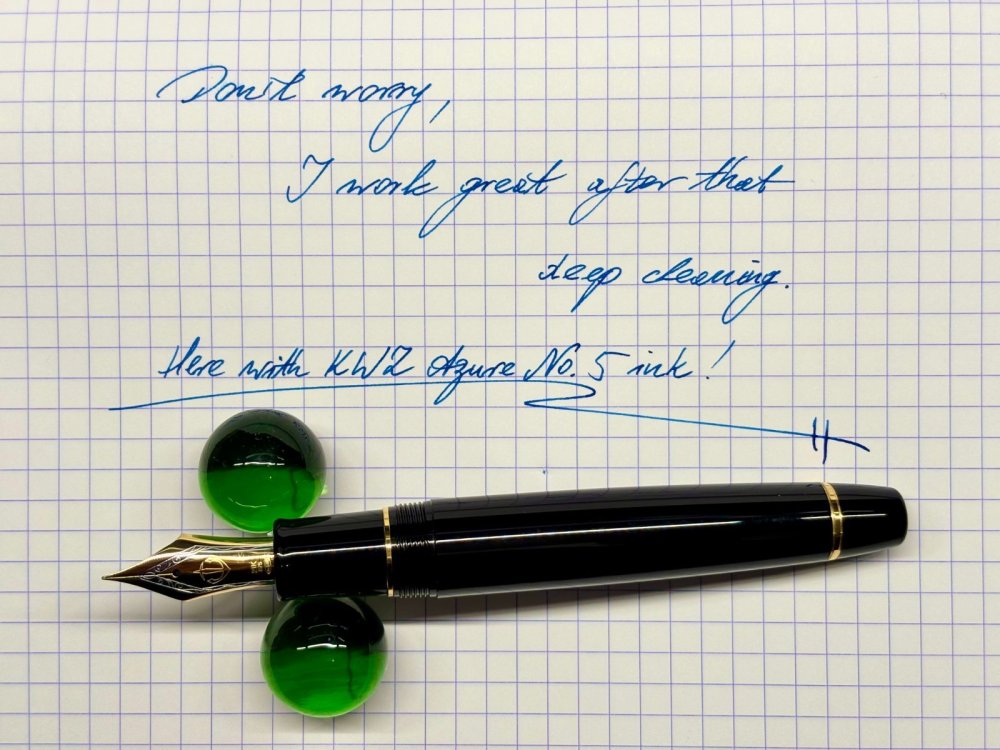 Don't worry,
I work great after that
deep cleaning.
Here with KWZ Azure No. 5 ink!